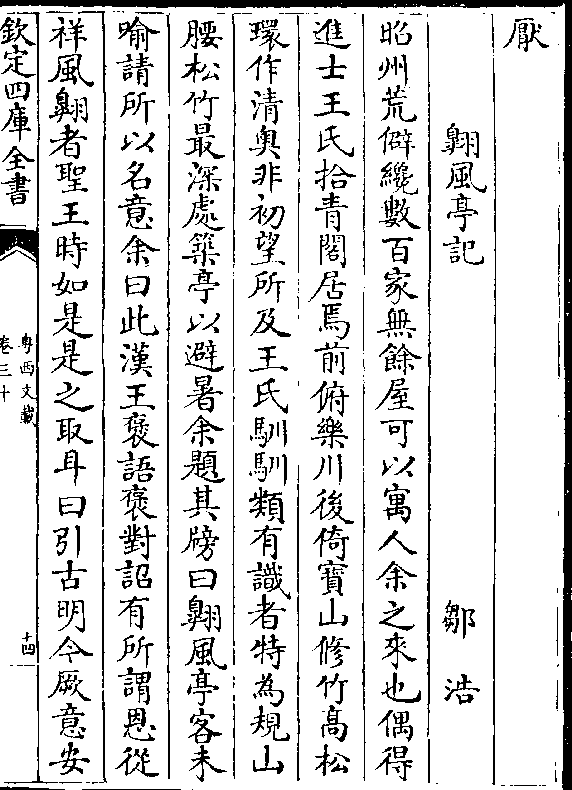 厭
翺風亭記　鄒浩
昭州荒僻纔數百家無餘屋可以寓人余之來也偶得
進士王氏拾青閣居焉前俯樂川後倚寶山修竹高松
環作清奥非初望所及王氏馴馴類有識者特為規山
腰松竹最深處築亭以避暑余題其牓曰翺風亭客未
喻請所以名意余曰此漢王褒語褒對詔有所謂恩從
祥風翺者聖王時如是是之取耳曰引古明今厥意安
欽定四庫全書
粤西文載
卷三十
十四